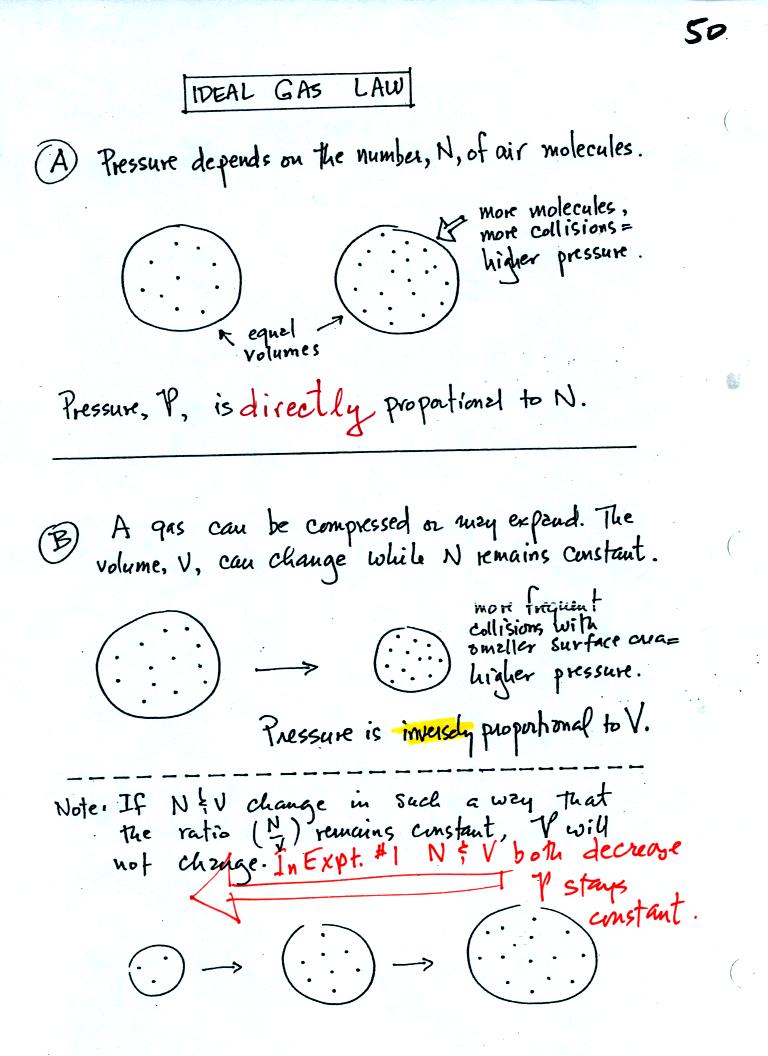 50
IDEAL GAS LAW
A Pressure depends on the number, N, of air molecules.
more molecules,
more collisions =
higher pressure.
equal
volumes
Pressure, P, is directly proportional to N.
B A gas can be compressed or may expand. The
volume, V, can change while N remains constant.
more frequent
collisions with
smaller surface area=
higher pressure.
Pressure is inversely proportional to V.
Note: If N & V change in such a way that
the ratio (N/V) remains constant, P will
not change. In Expt. #1 N & V both decrease
P stays
constant.